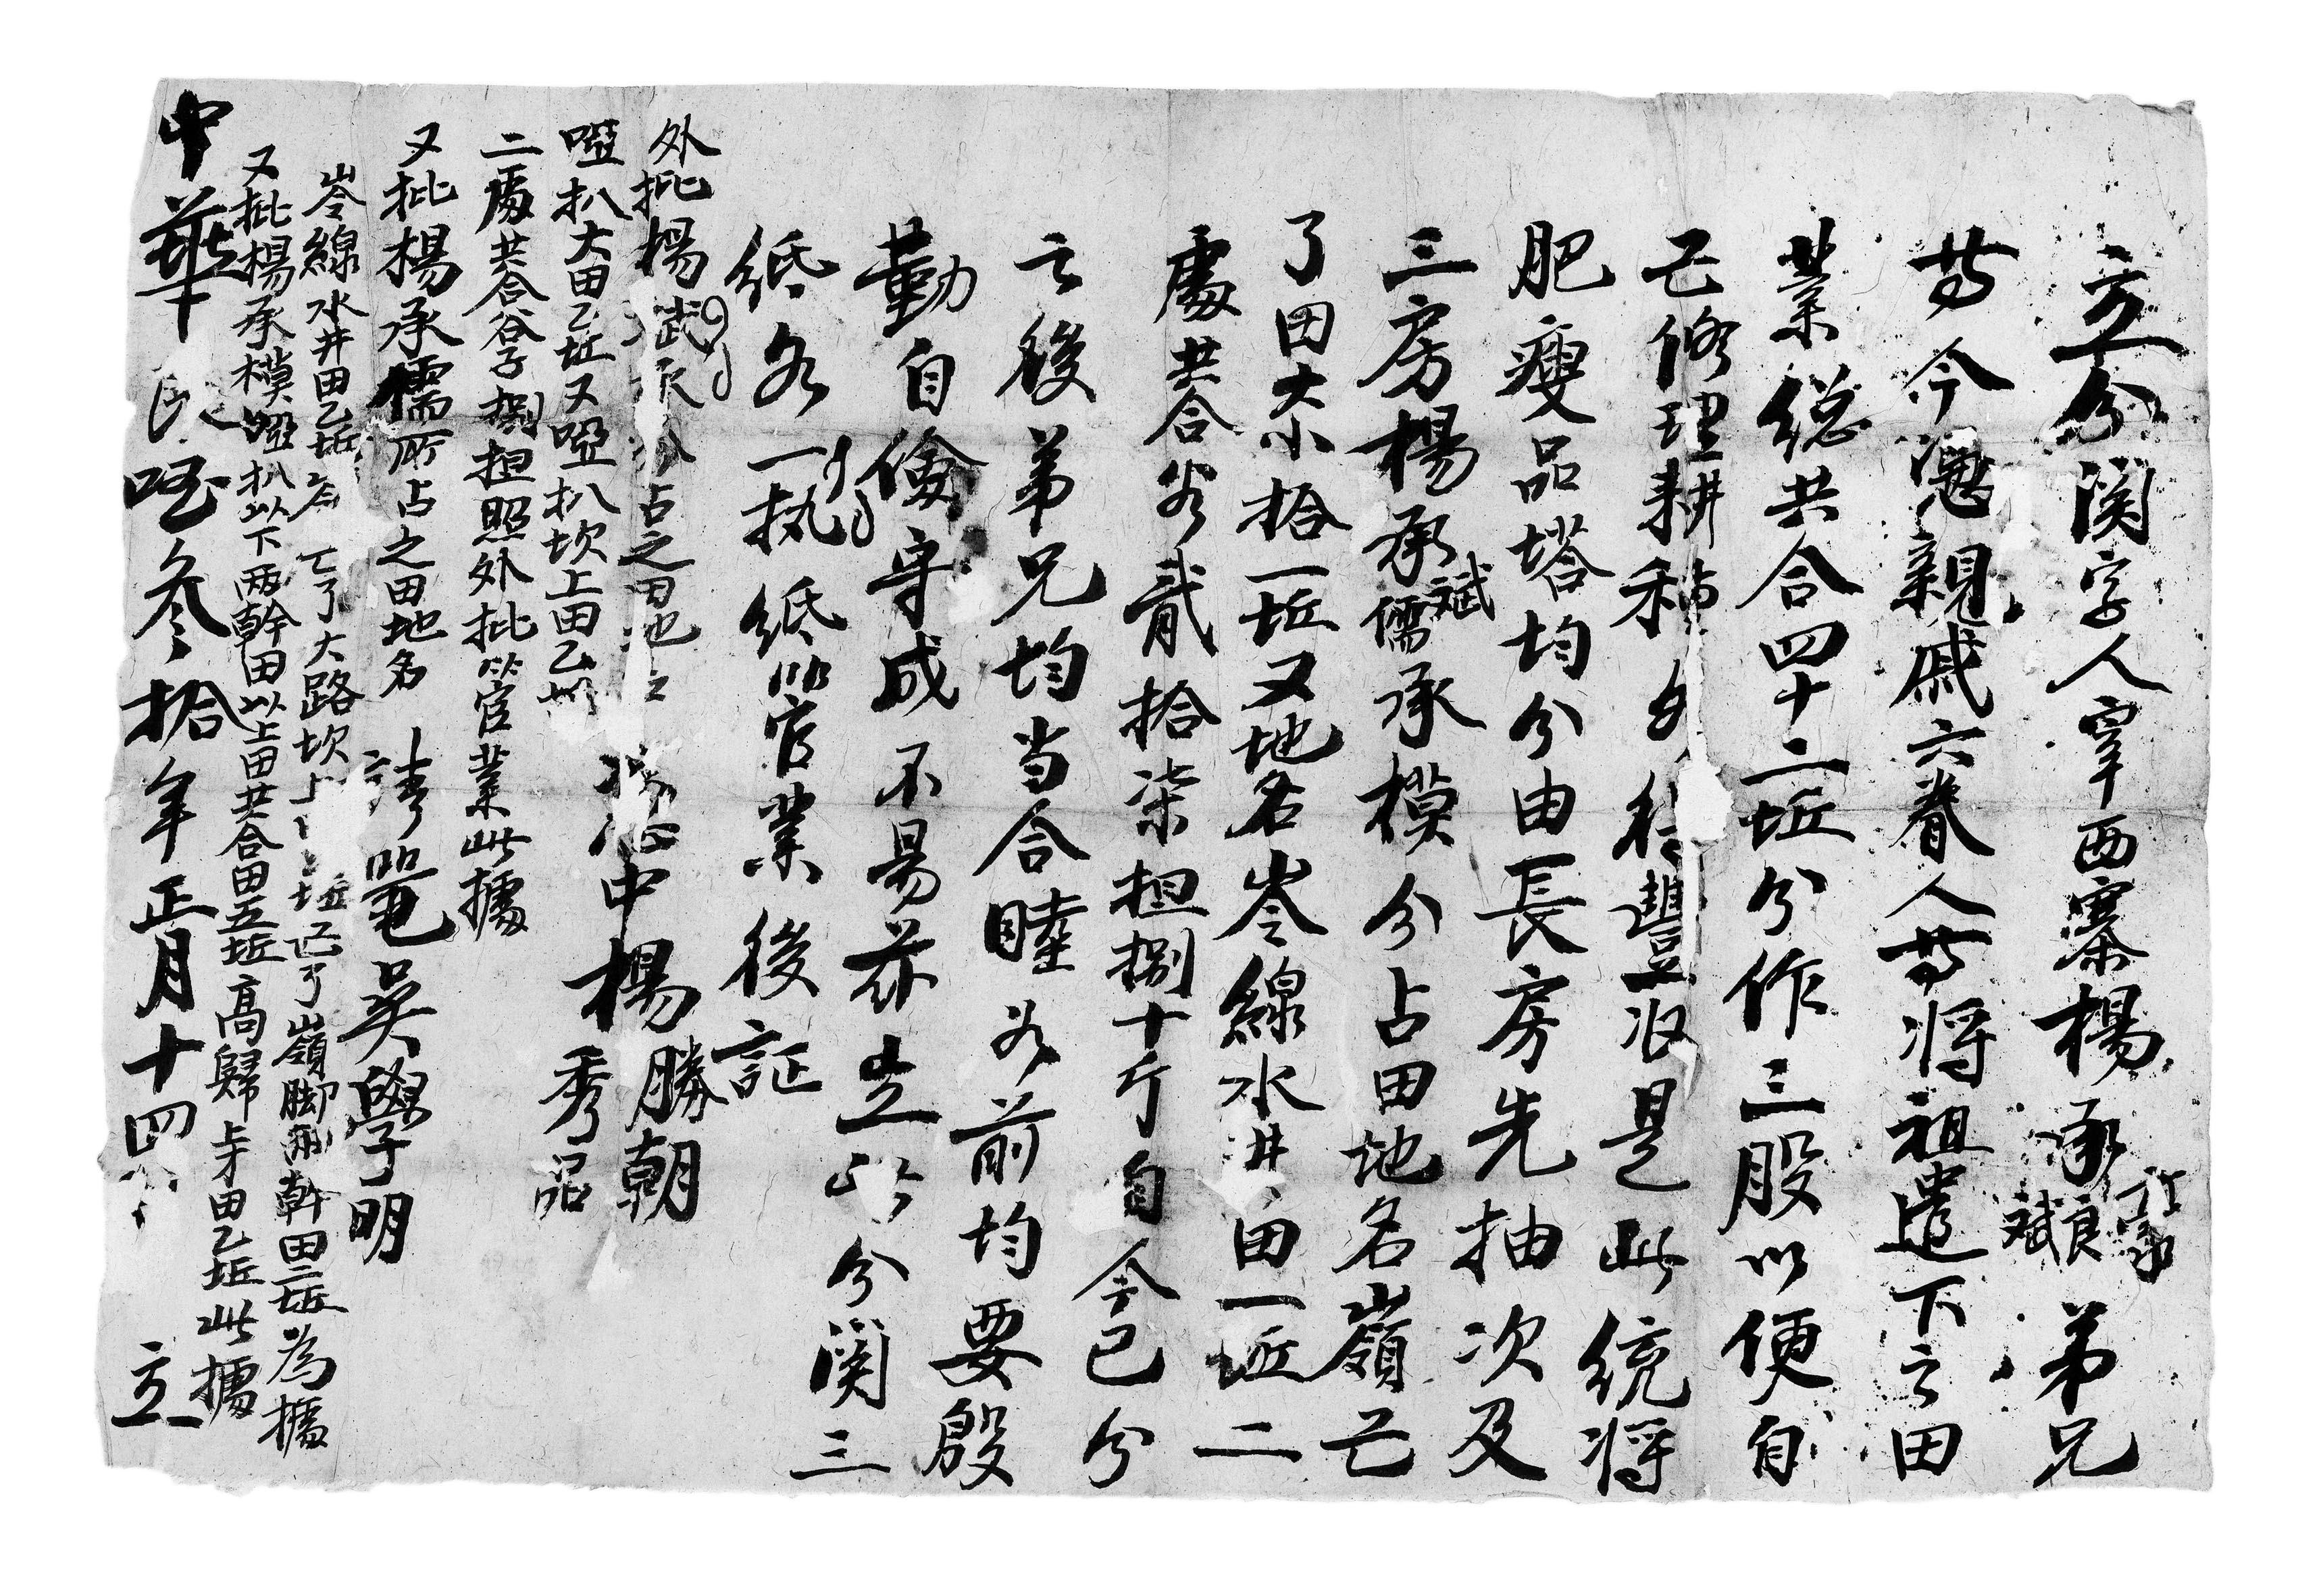 立分関字人宰西寨楊承斌良 弟兄
等今憑親戚六眷人等将祖遺下之田
業総共合四十二坵分作三股以便自
己修理耕種 豐收是此統将
肥瘦品塔均分由長房先抽次及
三房楊承斌儒承模分占田地名嶺亡
了田大小拾一坵又地名岺線水井田一坵二
處共合谷貳拾柒担捌十斤自今已分
之後弟兄均当合睦為前均要殷
勤自儉守成不易恭立此分関三
紙各一执紙以官業後証
外批楊斌承 占之田地
啞扒大田乙坵又啞扒坎上田乙
二處共合谷子捌担照外批以官業此據
憑中楊勝朝
秀品
又批楊承儒所占之田地名
岺線水井田乙坵 亡了大路坎上 坵亡了嶺脚両幹田二坵為據
請筆吳學明
又批楊承模啞扒以下两幹田以上田共合田五坵高歸 田乙坵此據
中華民國叁拾年正月十四 立